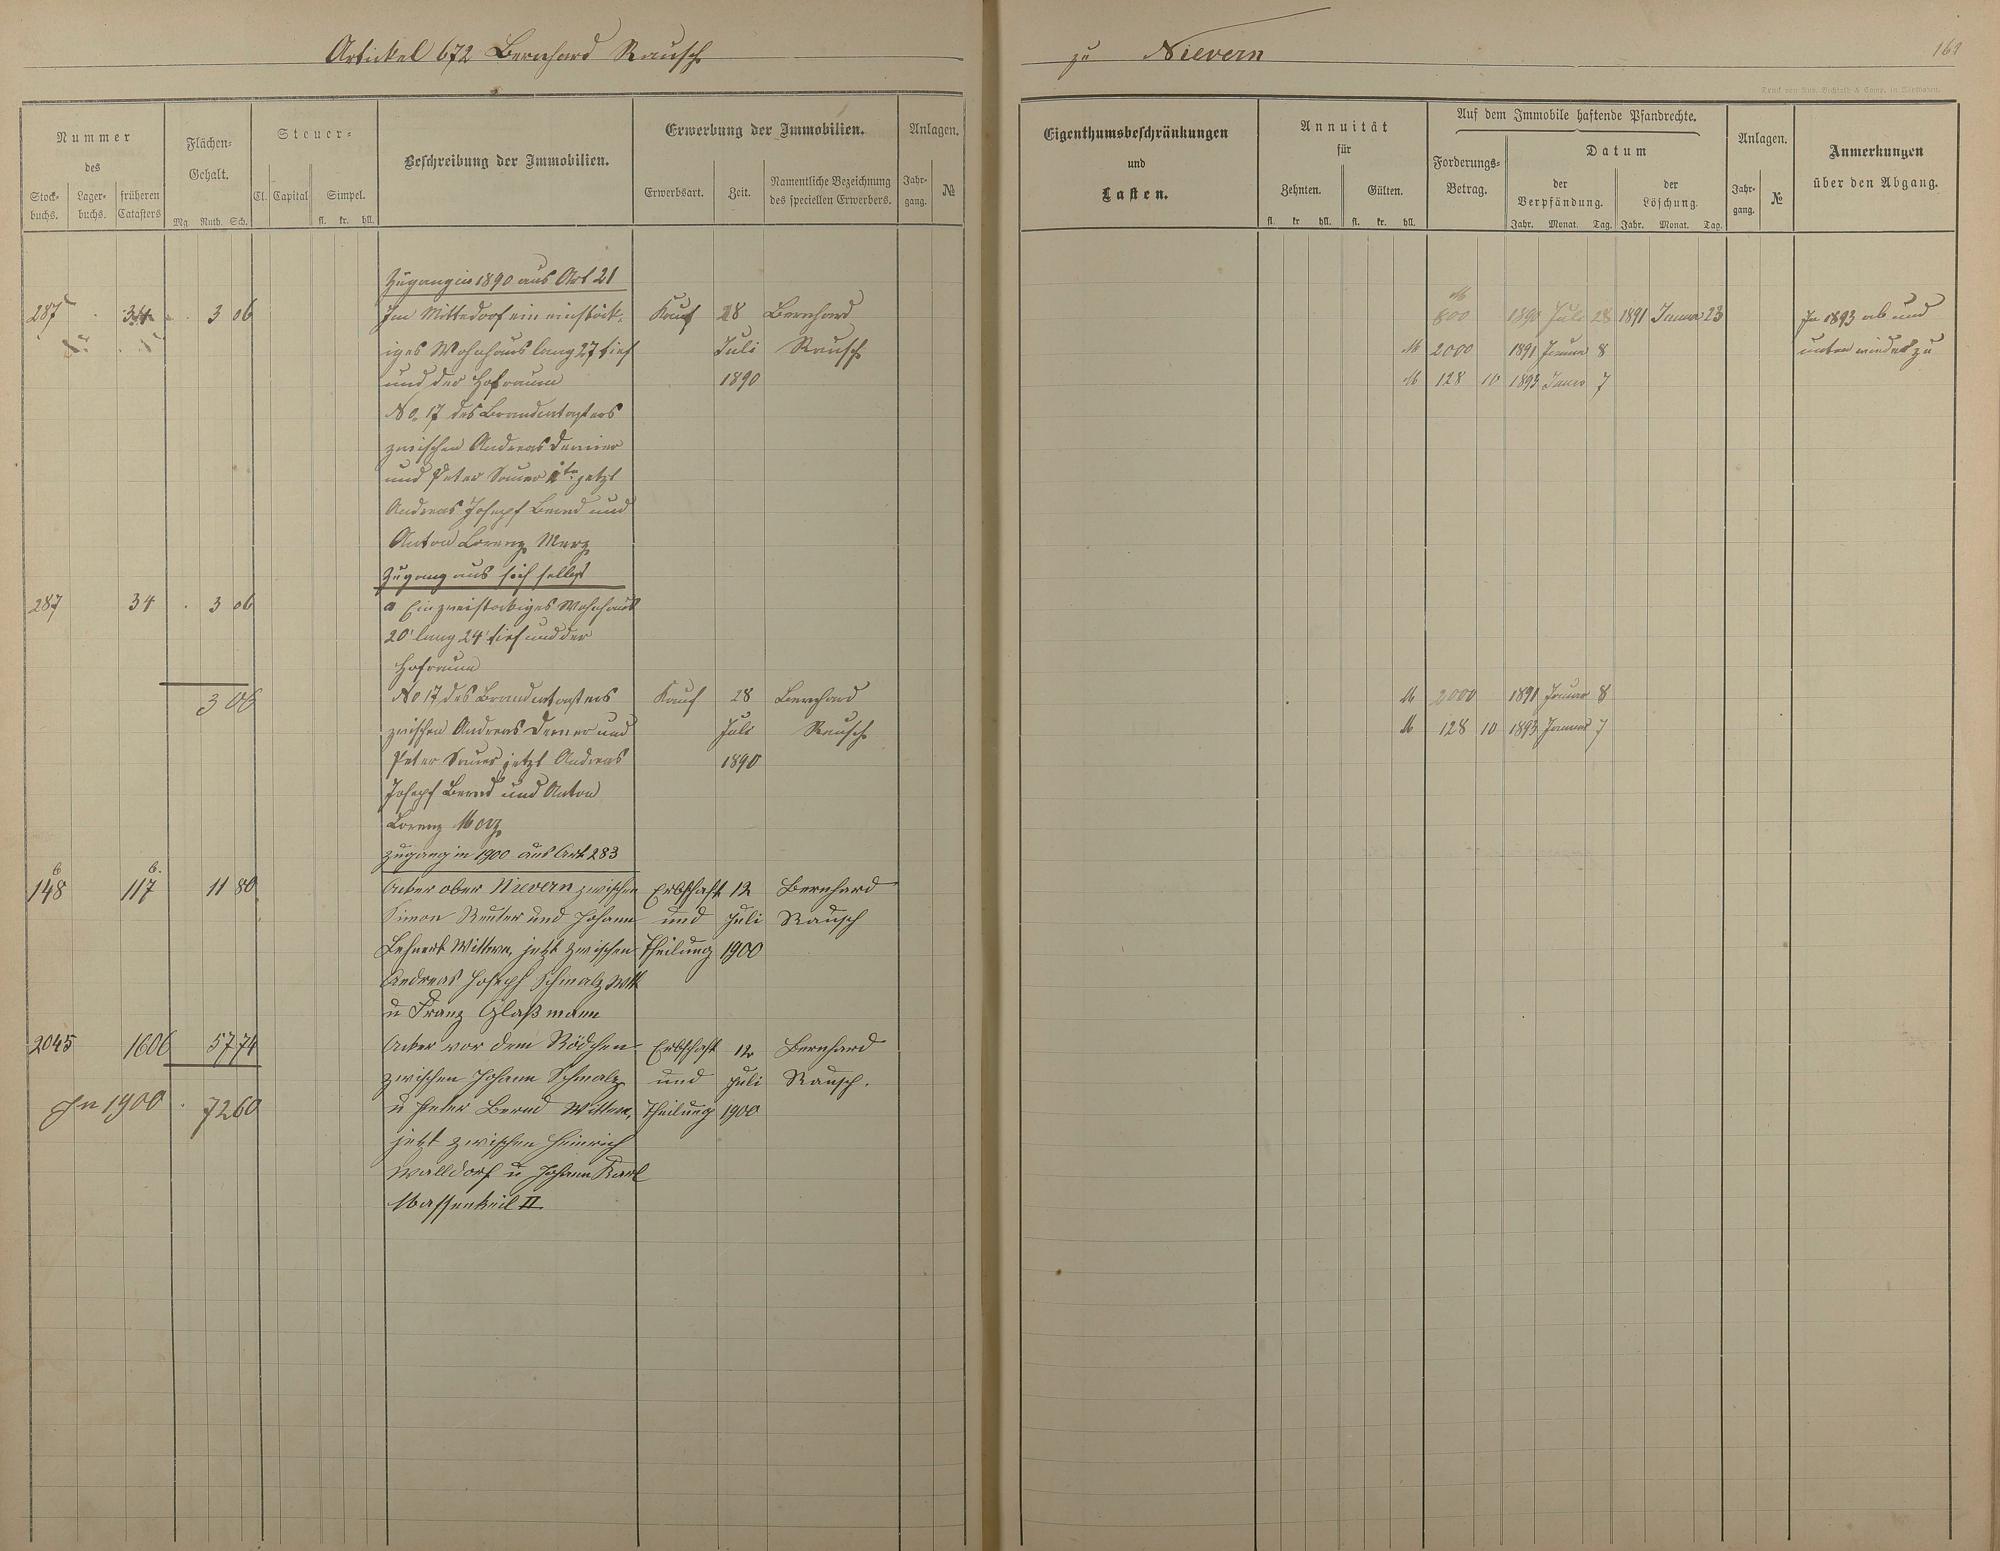 Artikel 672 Bernhard Rausch
Nummer
des
Stock-
buchs.
Lager-
buchs.
früheren
Catasters
Flächen-
Gehalt.
Mg. Ruth. Sch.
Steuer-
Cl. Capital Simpel.
fl. kr. hll.
Beschreibung der Immobilien.
Erwerbung der Immobilien.
Erwerbsart. Zeit.
Namentliche Bezeichnung
des speciellen Erwerbers.
Anlagen.
Jahr-
gang.
№
Zugang in 1890 aus Art 21
287 34 3 06 Im Mitteldorf ein einstöck- Kauf 28 Bernhard
iges Wohnhaus lang 27 tief Juli Rausch
und der Hofraum 1890
No. 17 des Brandcatasters
zwischen Andreas
und Peter jetzt
Andreas Josepf Bernd und
Anton Lorenz Merz
Zugang aus sich selbst
287 34 . 3 06 a Ein zweistöckiges Wohnhaus
20' lang 24' tief und der
Hofraum
3 06 No 17 des Brandcatasters Kauf 28 Bernhard
zwischen Andreas und Juli Rausch
Peter jetzt Andreas 1890
Josepf Bernd und Anton
Lorenz Merz
Zugang in 1900 aus Art 283
148 6 117 6. 11 80 Acker ober Nievern zwischen Erbschaft 12 Bernhard
Simon Reuter und Johann und Juli Rausch
Lehnert Wittwe, jetzt zwischen Theilung 1900
Andreas Joseph Schmalz Wtt
u Franz Glaßmann
2045 1606 57 74 Acker vor dem Rödchen Erbschaft 12 Bernhard
zwischen Johann Schmalz und Juli Rausch.
In 1900 . 72 60 u Peter Bernd Wittwe, Theilung 1900
jetzt zwischen Heinrich
Walldorf u Johann Karl
Massenkeil II
zu Nievern
Druck von Rud. Bechtold & Comp. in Wiesbaden.
Eigenthumsbeschränkungen
und
Lasten.
Annuität
für
Zehnten. Gülten.
fl. kr. hll. fl. kr. hll.
Auf dem Immobile haftende Pfandrechte.
Forderungs-
Betrag.
Datum
der
Verpfändung.
der
Löschung.
Jahr. Monat. Tag. Jahr. Monat. Tag.
Anlagen.
Jahr-
gang.
№
Anmerkungen
über den Abgang.
M
800 1890 Juli 28 1891 Januar 23 In 1893 ab und
M 2000 1891 Januar 8 unten wieder zu
M 128 10 1893 Januar 7
M 2000 1891 Januar 8
M 128 10 1893 Januar 7